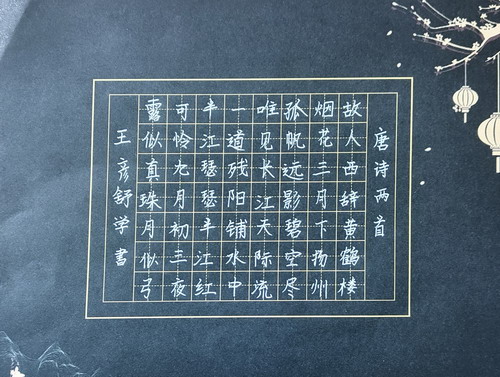 唐诗两首
故人西辞黄鹤楼
烟花三月下扬州
孤帆远影碧空尽
唯见长江天际流
一道残阳铺水中
半江瑟瑟半江红
可怜九月初三夜
露似真珠月似弓
王彦舒学书